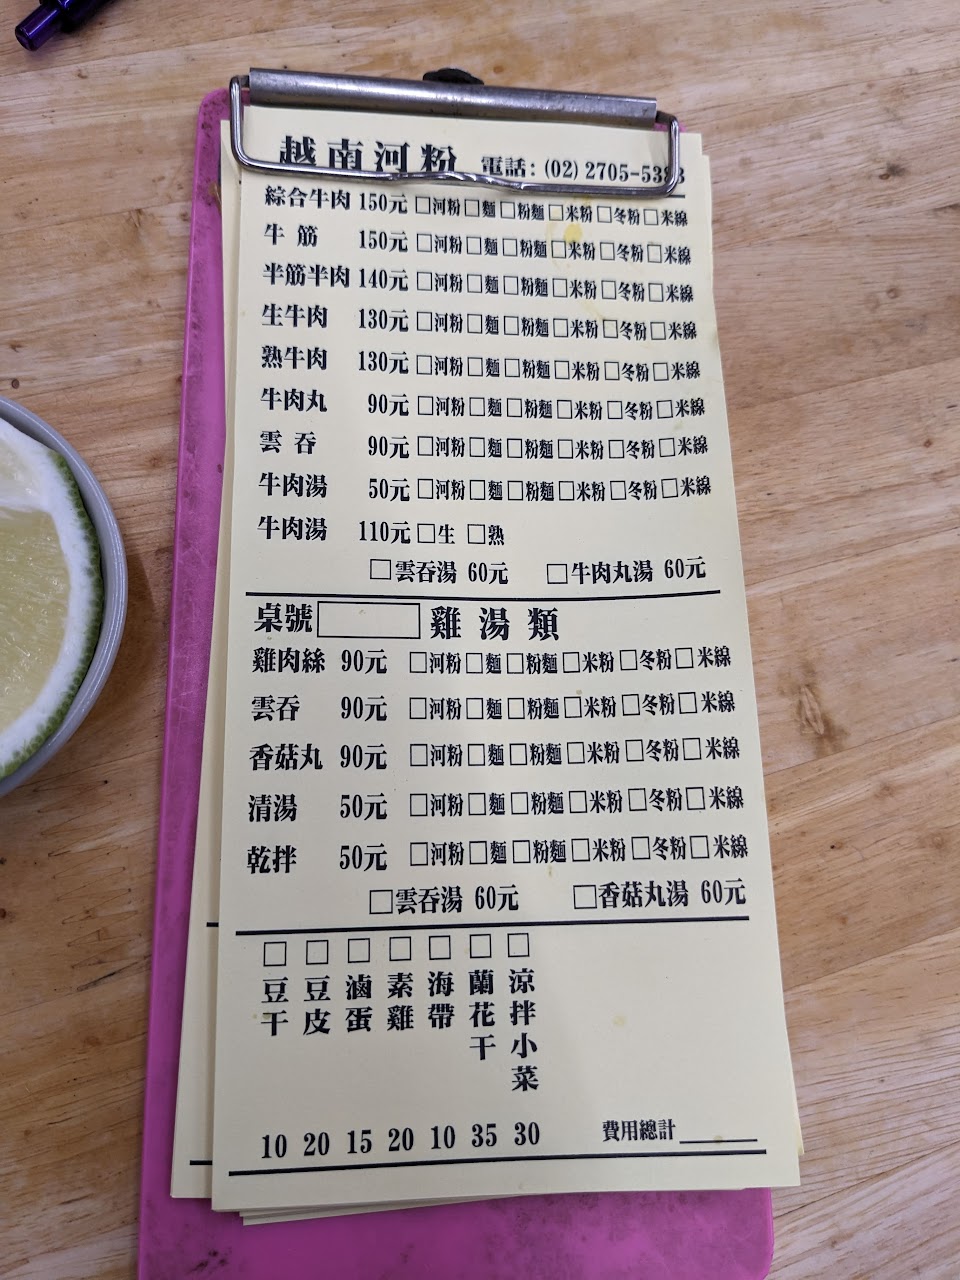 越南河粉 電話：(02) 2705-5383
綜合牛肉 150元 □河粉□麵□粉麵□米粉□冬粉□米線
牛筋 150元 □河粉□麵□粉麵□米粉□冬粉□米線
半筋半肉 140元 □河粉□麵□粉麵□米粉□冬粉□米線
生牛肉 130元 □河粉□麵□粉麵□米粉□冬粉□米線
熟牛肉 130元 □河粉□麵□粉麵□米粉□冬粉□米線
牛肉丸 90元 □河粉□麵□粉麵□米粉□冬粉□米線
雲吞 90元 □河粉□麵□粉麵□米粉□冬粉□米線
牛肉湯 50元 □河粉□麵□粉麵□米粉□冬粉□米線
牛肉湯 110元 □生 □熟
□雲吞湯 60元 □牛肉丸湯 60元
桌號 雞湯類
雞肉絲 90元 □河粉□麵□粉麵□米粉□冬粉□米線
雲吞 90元 □河粉□麵□粉麵□米粉□冬粉□米線
香菇丸 90元 □河粉□麵□粉麵□米粉□冬粉□米線
清湯 50元 □河粉□麵□粉麵□米粉□冬粉□米線
乾拌 50元 □河粉□麵□粉麵□米粉□冬粉□米線
□雲吞湯 60元 □香菇丸湯 60元
□豆干 10
□豆皮 20
□滷蛋 15
□素雞 20
□海帶 10
□蘭花干 35
□涼拌小菜 30
費用總計